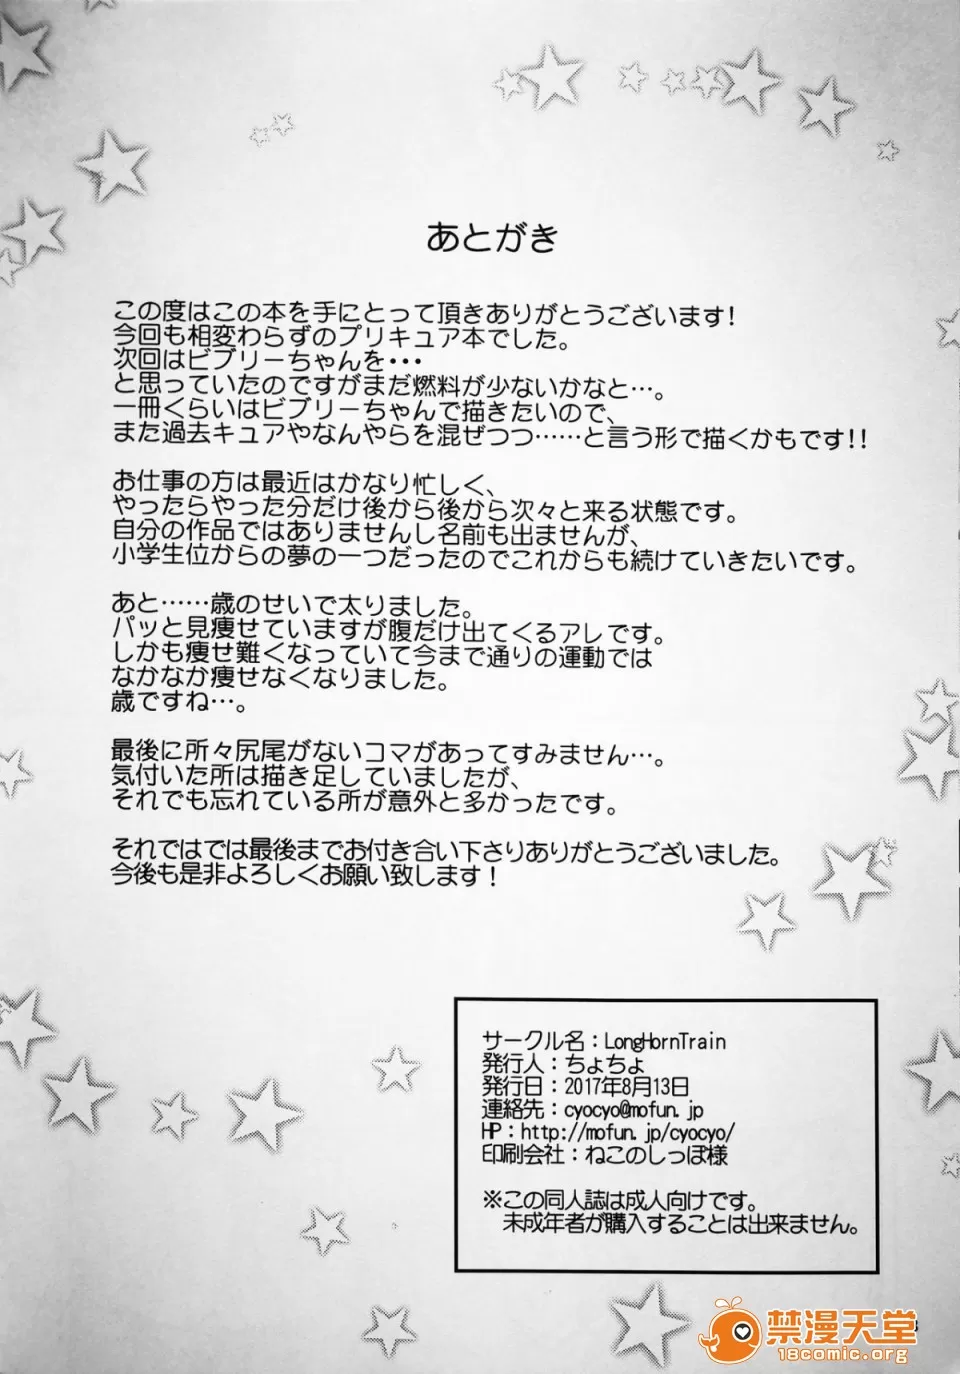 あとがき
この度はこの本を手にとって頂きありがとうございます!
今回も相変わらずのプリキュア本でした。
次回はビブリーちゃんを・・・
と思っていたのですがまだ燃料が少ないかなと…。
一冊くらいはビブリーちゃんで描きたいので、
また過去キュアやなんやらを混ぜつつ……と言う形で描くかもです!!
お仕事の方は最近はかなり忙しく、
やったらやった分だけ後から後から次々と来る状態です。
自分の作品ではありませんし名前も出ませんが、
小学生位からの夢の一つだったのでこれからも続けていきたいです。
あと……歳のせいで太りました。
パッと見痩せていますが腹だけ出てくるアレです。
しかも痩せ難くなっていて今まで通りの運動では
なかなか痩せなくなりました。
歳ですね…。
最後に所々尻尾がないコマがあってすみません…。
気付いた所は描き足していましたが、
それでも忘れている所が意外と多かったです。
それではでは最後までお付き合い下さりありがとうございました。
今後も是非よろしくお願い致します!
サークル名：LongHornTrain
発行人：ちょちょ
発行日：2017年8月13日
連絡先：cyocyo@mofun.jp
HP：http://mofun.jp/cyocyo/
印刷会社：ねこのしっぽ様
※この同人誌は成人向けです。
未成年者が購入することは出来ません。
禁漫天堂
18comic.org